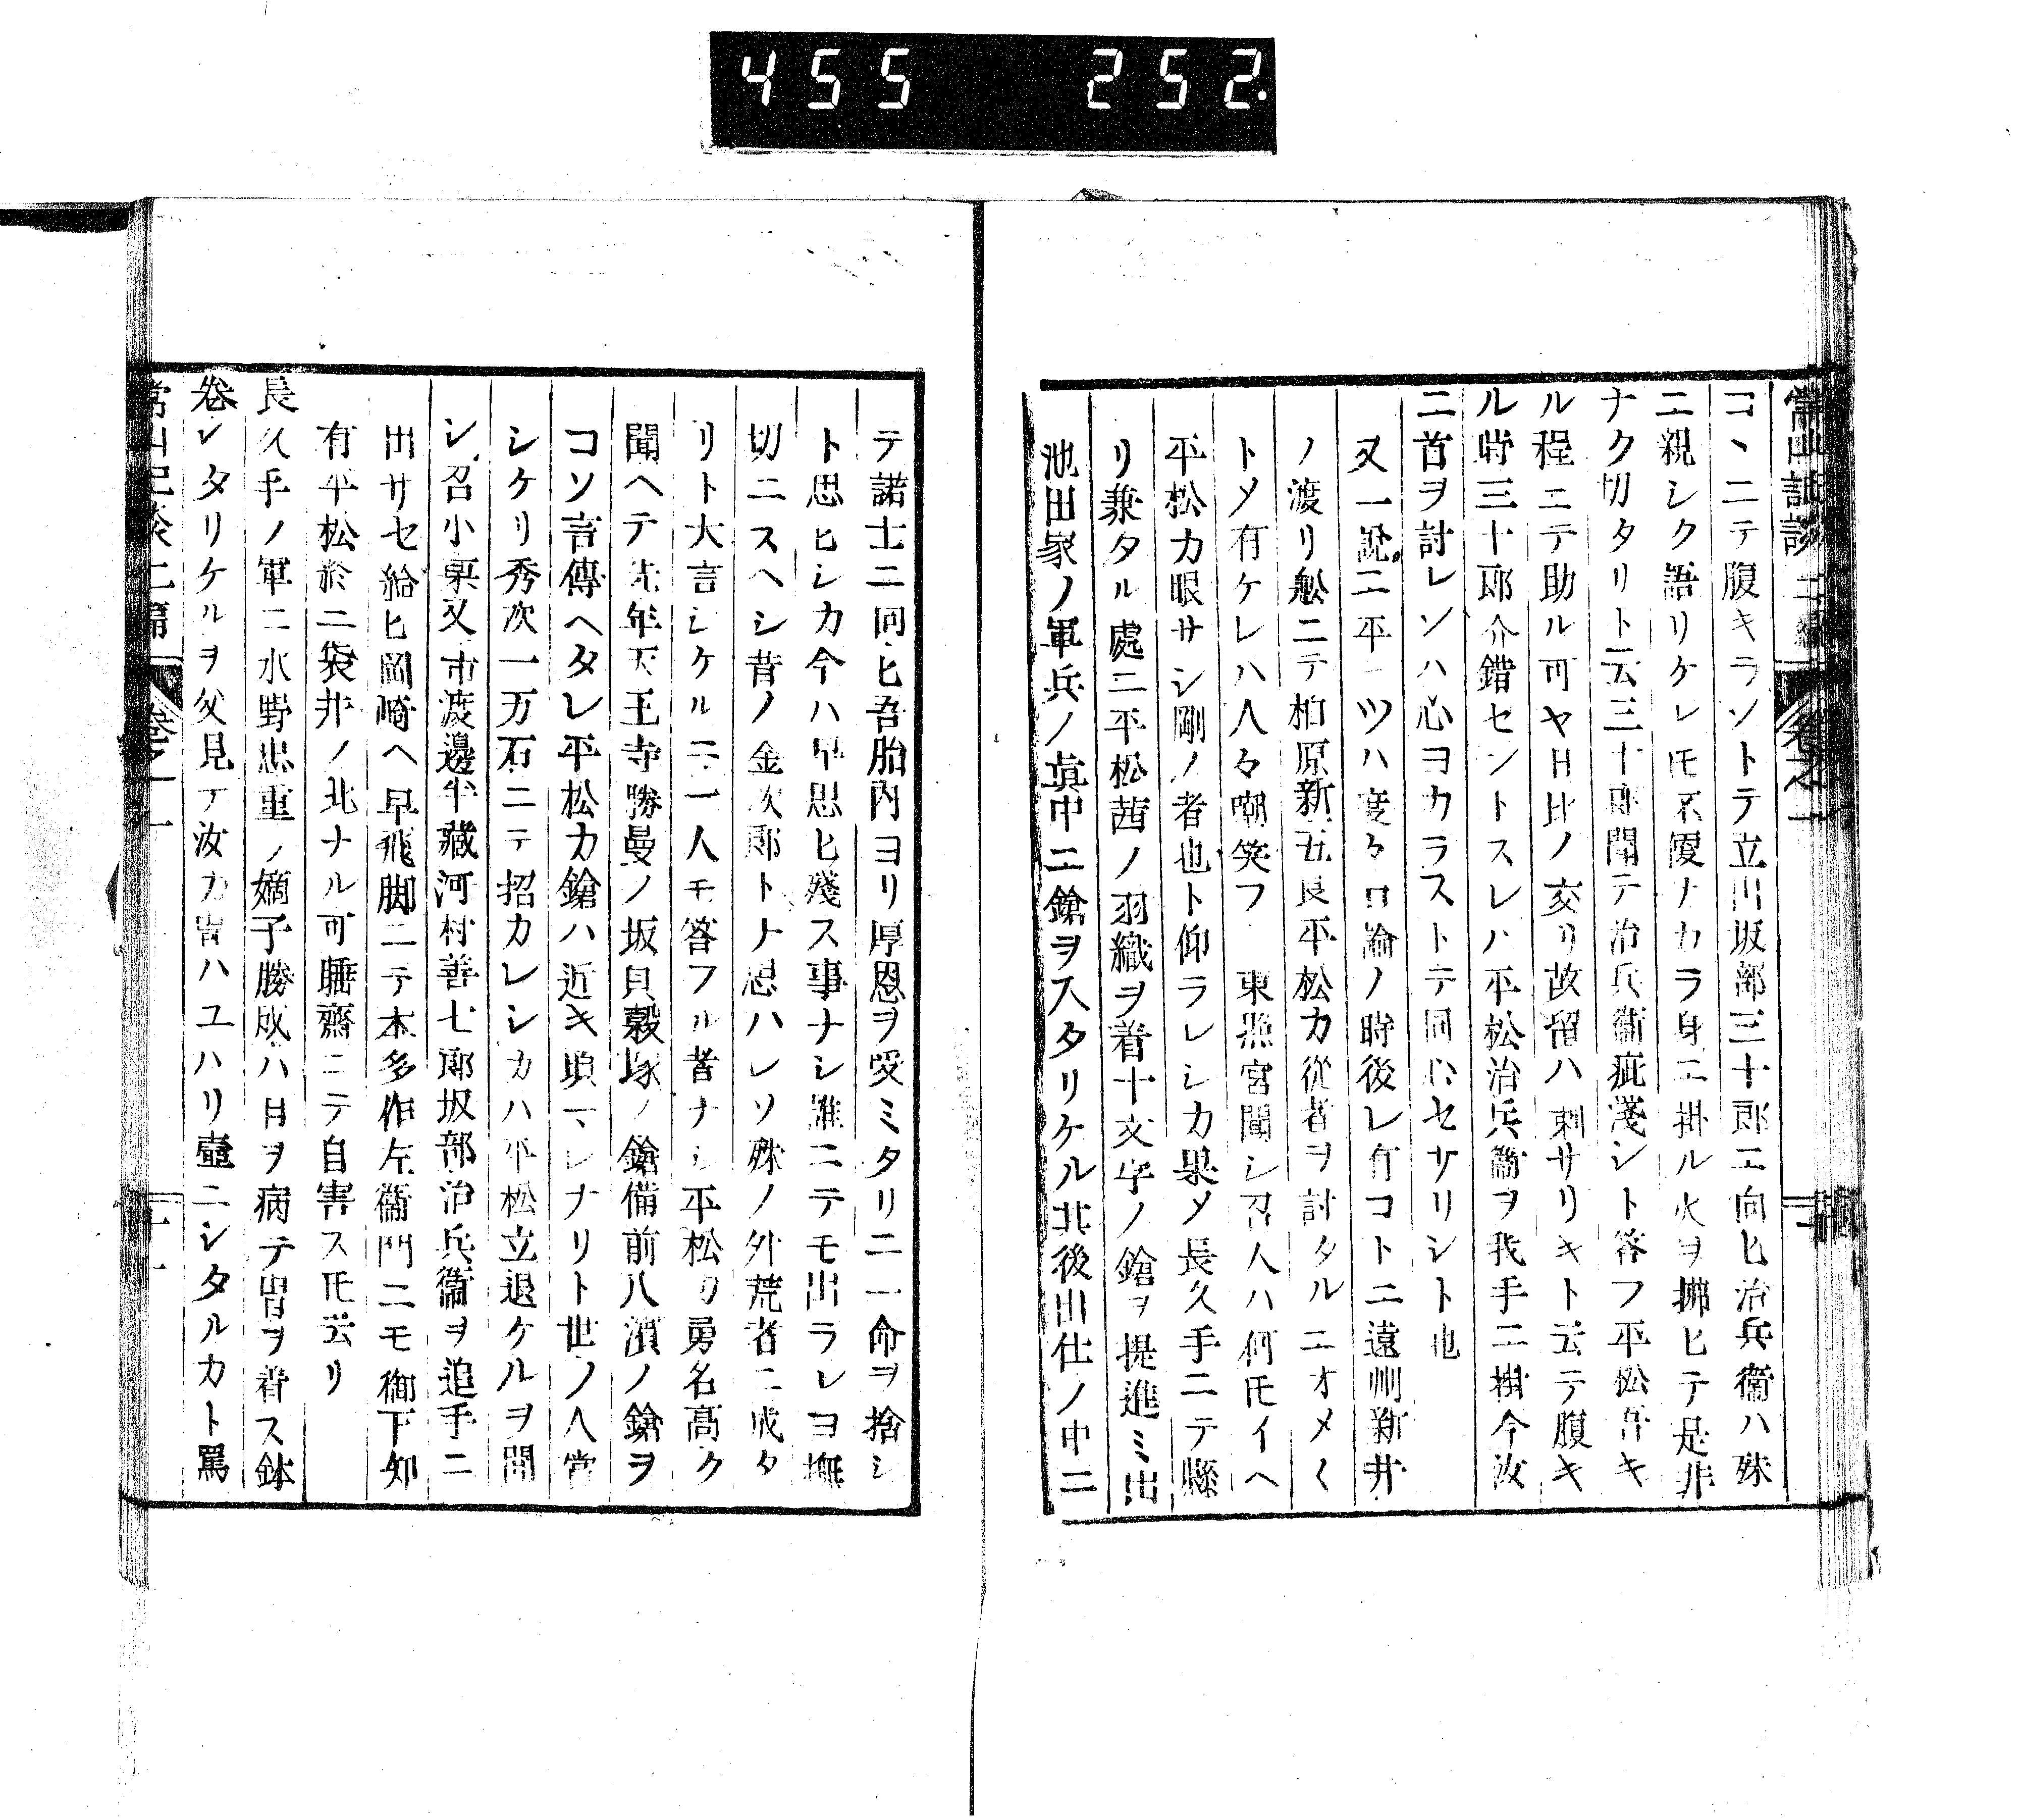 455 252.
コヽニテ腹キラントテ立川坂部三十郎ニ向ヒ治兵衞ハ殊
ニ親シク語リケレ𪜈不覆ナカラ身ニ掛ル火ヲ拂ヒテ是非
ナク切タリト云三十郎聞テ治兵衞疵淺シト答フ平松吾キ
ル程ニテ助ル可ヤ日比ノ交リ故留ハ刺サリキト云テ腹キ
ル時三十郎介錯セントスレハ平松治兵衞ヲ我手ニ掛今汝
ニ首ヲ討レンハ心ヨカラストテ同心セサリシト也
又一説ニ平一ツハ度々口論ノ時後レ有コトニ遠州新井
ノ渡リ舩ニテ柏原新五良平松カ從者ヲ討タルニオメ〱
トメ有ケレハ人々嘲笑フ 東照宮聞シ召人ハ何𪜈イヘ
平松カ眼サシ剛ノ者也ト仰ラレシカ果メ長久手ニテ縣
リ兼タル處ニ平松茜ノ羽織ヲ着十文字ノ鎗ヲ提進ミ出
池田家ノ軍兵ノ眞中ニ鎗ヲ入タリケル其後出仕ノ中ニ
テ諸士ニ向ヒ吾胎内ヨリ厚恩ヲ受ミタリニ一命ヲ捨シ
ト思ヒシカ今ハ早思ヒ殘ス事ナシ誰ニテモ出ラレヨ撫
切ニスヘシ昔ノ金次郎トナ思ハレソ殊ノ外荒者ニ成タ
リト大言シケルニ一人モ答フル者ナシ平松カ勇名高ク
聞ヘテ先年天王寺勝曼ノ坂貝穀塚ノ鎗備前八濱ノ鎗ヲ
コソ言傳ヘタレ平松カ鎗ハ近キ頃マレナリト世ノ人賞
シケリ秀次一万石ニテ招カレシカハ平松立退ケルヲ聞
シ召小栗又市渡邊半藏河村善七郎坂部治兵衞ヲ追手ニ
出サセ給ヒ岡崎ヘ早飛脚ニテ本多作左衞門ニモ御下知
有平松於二袋井ノ北ナル可睡齋ニテ自害ス𪜈云リ
長久手ノ軍ニ水野忠重ノ嫡子勝成ハ目ヲ病テ冑ヲ着ス鉢
卷シタリケルヲ父見テ汝カ冑ハユハリ壺ニシタルカト罵